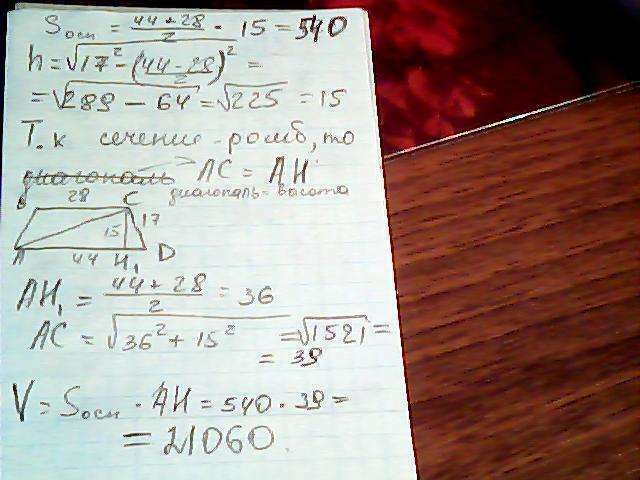 Sосн = (44+28)/2 · 15 = 540
h = √(17² - ((44-28)/2)²) =
= √(289 - 64) = √225 = 15
Т.к сечение - ромб, то
диагональ AC = AH
диагональ = высота
B 28 C
15 17
A 44 H₁ D
AH₁ = (44+28)/2 = 36
AC = √(36² + 15²) = √1521 =
= 39
V = Sосн · AH = 540 · 39 =
= 21060